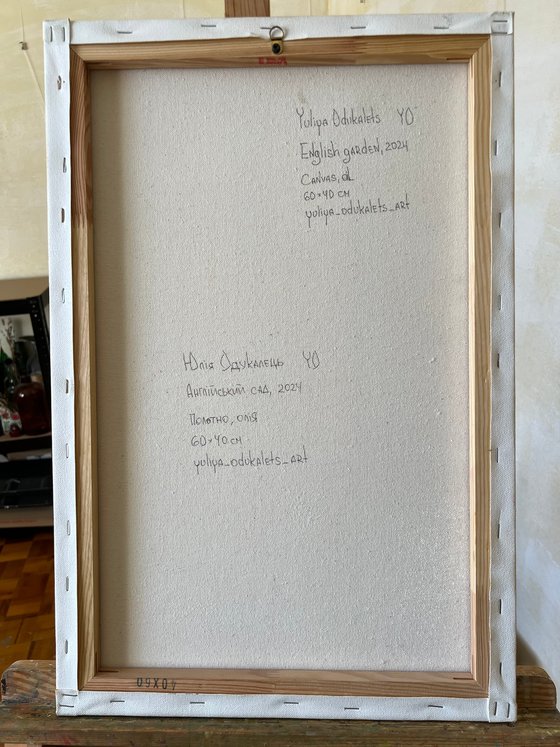 Yuliya Odukalets YO
English garden, 2024
Canvas, oil
60×40 cm
yuliya_odukalets_art
Юлія Одукалець YO
Англійський сад, 2024
Полотно, олія
60×40 см
yuliya_odukalets_art
40X60